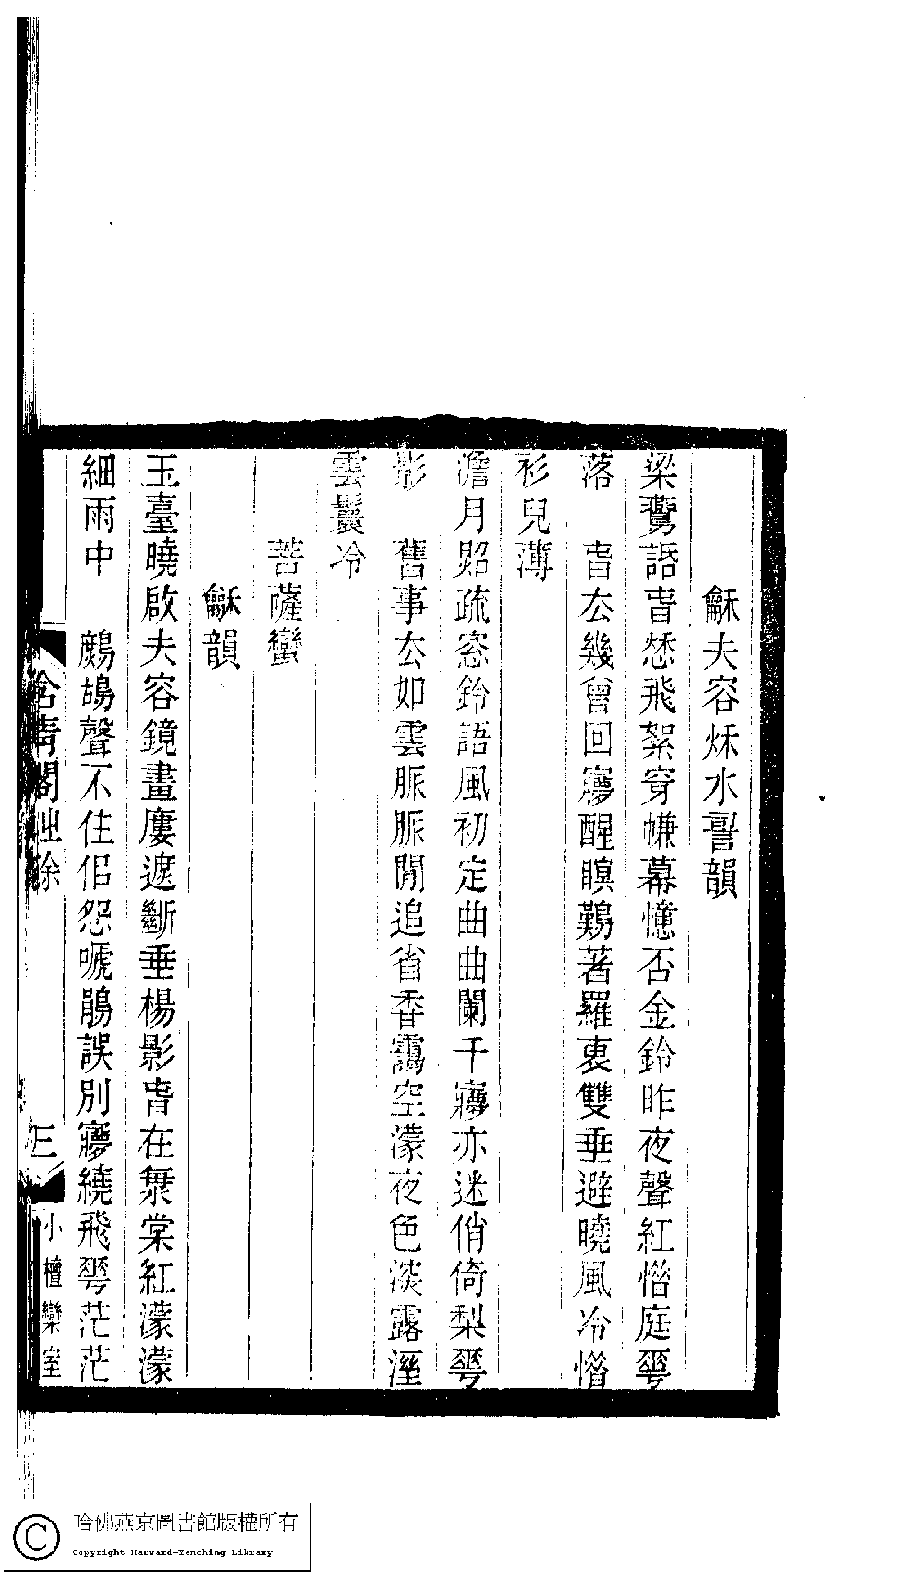 龢夫容秌水韻
梁鷰語旾愁飛絮穿㡘幕憶否金鈴昨夜聲紅惜庭𠌶
落　旾厺幾曾回㝱醒瞑難著羅褏雙垂避曉風冷惜
衫兒薄
澹月照疏窓鈴語風初定曲曲闌干㝱亦迷俏倚梨𠌶
影　舊事厺如雲脈脈閒追省香靄空濛夜色淡露溼
雲鬟冷
菩薩蠻
龢韻
玉臺曉啟夫容鏡畫廔遮斷垂楊影旾在海棠紅濛濛
細雨中　鷓鴣聲不住佀怨嗁鵑誤別㝱繞飛𠌶茫茫
含青閣詩餘
三
小檀欒室
哈佛燕京圖書館版權所有
Copyright Harvard-Yenching Library